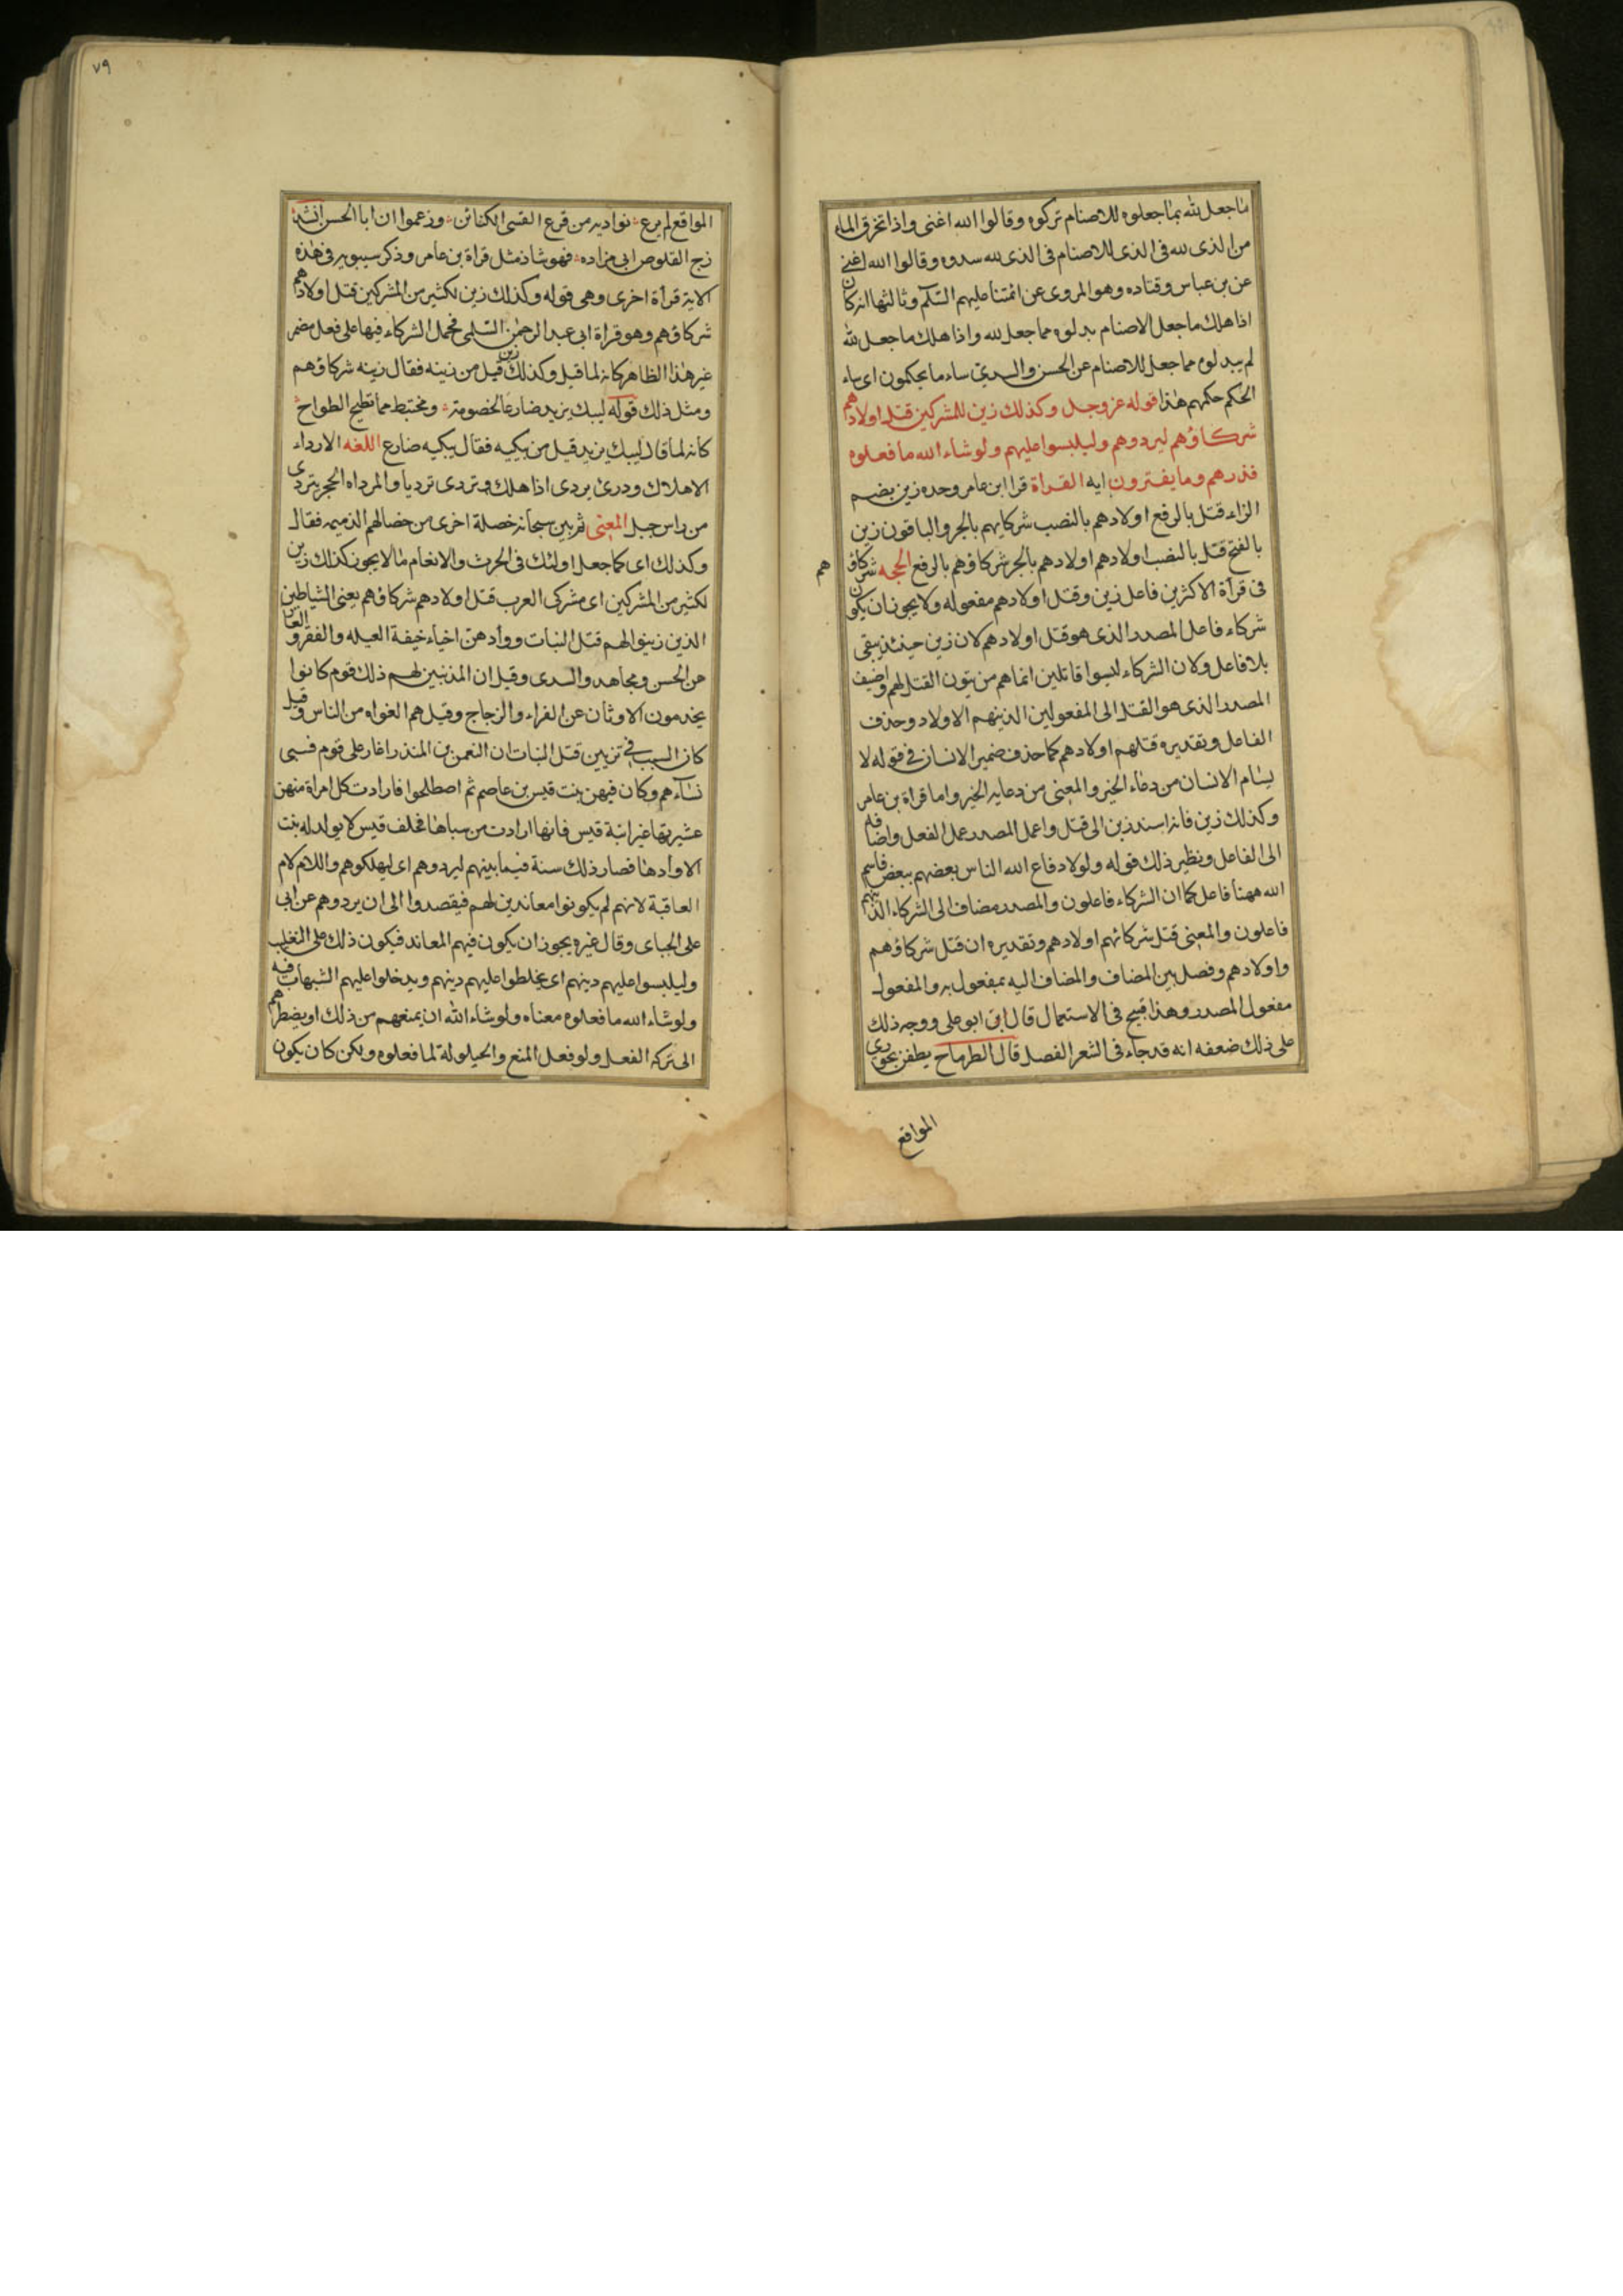 ما جعل لله بما جعلوه للاصنام تركوه وقالوا الله اغنى واذا تخرق الماء
من الذى لله فى الذى للاصنام فى الذى لله سدوه وقالوا الله اغنى
عن بن عباس وقتاده وهو المروى عن ائمتنا عليهم السلم وثالثها انه كان
اذا هلك ما جعل الاصنام بدلوه مما جعل لله واذا هلك ما جعل لله
لم يبدلوه مما جعل للاصنام عن الحسن والسدى ساء ما يحكمون اى ساء
الحكم حكمهم هذا قوله عز وجل وكذلك زين للمشركين قتل اولادهم
شركاؤهم ليردوهم وليلبسوا عليهم ولو شاء الله ما فعلوه
فذرهم وما يفترون ايه القراة قرا ابن عامر وحده زين بضم
الزاء قتل بالرفع اولادهم بالنصب شركايهم بالجر والباقون زين
بالفتح قتل بالنصب اولادهم اولادهم بالجر شركاؤهم بالرفع الحجه شركاؤ هم
فى قرأة الاكثرين فاعل زين وقتل اولادهم مفعوله ولا يجوز ان يكون
شركاء فاعل المصدر الذى هو قتل اولادهم لان زين حينئذ يبقى
بلا فاعل ولان الشركاء ليسوا قاتلين انما هم مزينون القتل لهم واضيف
المصدر الذى هو القتل الى المفعولين الذينهم الاولاد وحذف
الفاعل وتقديره قتلهم اولادهم كما حذف ضمير الانسان فى قوله لا
يسام الانسان من دعاء الخير والمعنى من دعايه الخير واما قراة بن عامر
وكذلك زين فانه اسند زين الى قتل واعمل المصدر عمل الفعل واضافه
الى الفاعل ونظير ذلك قوله ولولا دفاع الله الناس بعضهم ببعض فاسم
الله ههنا فاعل كما ان الشركاء فاعلون والمصدر مضاف الى الشركاء الذينهم
فاعلون والمعنى قتل شركائهم اولادهم وتقديره ان قتل شركاؤهم
واولادهم وفصل بين المضاف والمضاف اليه بمفعول به والمفعول
مفعول المصدر وهذا قبيح فى الاستعمال قال ابو على ووجه ذلك
على ذلك ضعفه انه قد جاء فى الشعر الفصل قال الطرماح يطفن بحوزى
المواقع
٧٩
المواقع لم يرع نواديه من قرع القسى الكنائن وزعموا ان ابا الحسن انشد
زج القلوص ابى مزاده فهو شاذ مثل قراة بن عامر وذكر سيبويه فى هذه
الاية قرأة اخرى وهى قوله وكذلك زين لكثير من المشركين قتل اولادهم
شركاؤهم وهو قراة ابى عبد الرحمن السلمى فحمل الشركاء فيها على فعل مضمر
غير هذا الظاهر كانه لما قيل وكذلك زين قيل من زينه فقال زينه شركاؤهم
ومثل ذلك قوله ليبك يزيد ضارعا لخصومة ومختبط مما تطيح الطوائح
كانه لما قال ليبك يزيد قيل من يبكيه فقال يبكيه ضارع اللغه الارداء
الاهلاك وردى يردى اذا هلك وتردى ترديا والمرداه الحجر يتردى
من راس جبل المعنى ثم بين سبحانه خصلة اخرى من خصالهم الذميمه فقال
وكذلك اى كما جعل اولئك فى الحرث والانعام ما لا يجوز كذلك زين
لكثير من المشركين اى مشركى العرب قتل اولادهم شركاؤهم يعنى الشياطين
الذين زينوا لهم قتل البنات ووأدهن احياء خيفة العيله والفقر والعار
عن الحسن ومجاهد والسدى وقيل ان المذنبين لهم ذلك قوم كانوا
يخدمون الاوثان عن الفراء والزجاج وقيل هم الغواه من الناس وقيل
كان السبب فى تزيين قتل البنات ان النعمن بن المنذر اغار على قوم فسبى
نسآءهم وكان فيهن بنت قيس بن عاصم ثم اصطلحوا فارادت كل امراة منهن
عشيرتها غير ابنة قيس فانها ارادت من سباها فحلف قيس لا يولد له بنت
الا وأدها فصار ذلك سنة فيما بينهم ليردوهم اى ليهلكوهم واللام لام
العاقبة لانهم لم يكونوا معاندين لهم فيقصدوا الى ان يردوهم عن ابى
على الجباى وقال غيره يجوز ان يكون فيهم المعاند فيكون ذلك على التغليب
وليلبسوا عليهم دينهم اى يخلطوا عليهم دينهم ويدخلوا عليهم الشبهات فيه
ولو شاء الله ما فعلوه معناه ولو شاء الله ان يمنعهم من ذلك او يضطرهم
الى تركه الفعل ولو فعل المنع والحيلولة لما فعلوه ولكن كان يكون